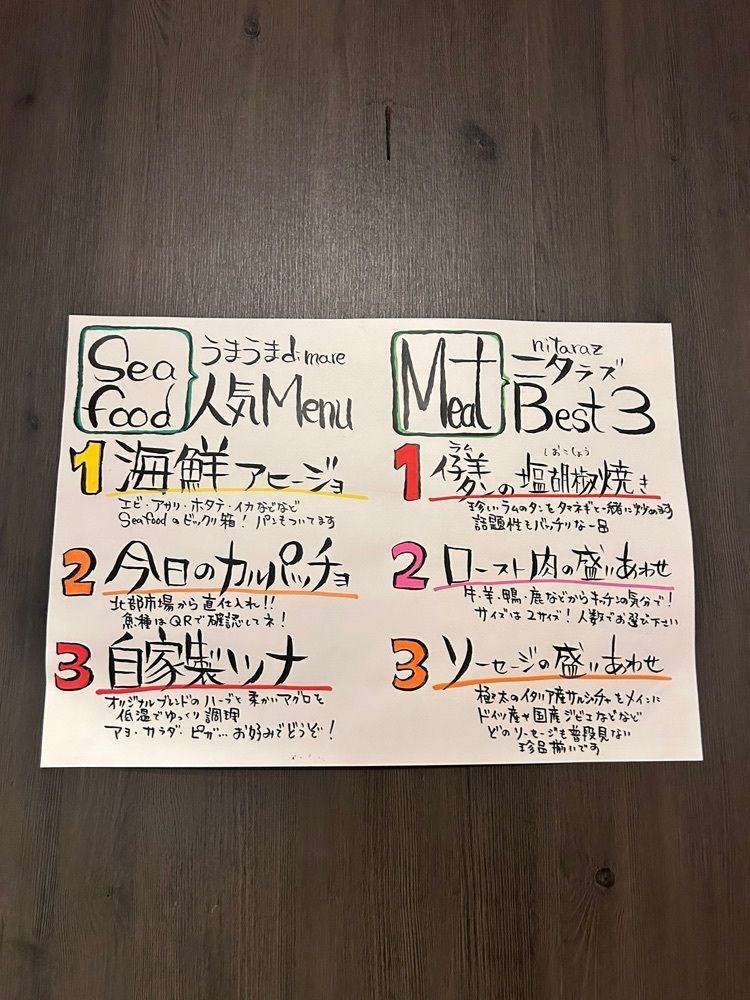 Sea
food
うまうまdi mare
人気Menu
1 海鮮アヒージョ
エビ・アサリ・ホタテ・イカなどなど
Seafoodのビックリ箱!パンもついてます
2 今日のカルパッチョ
北部市場から直仕入れ!!
魚種はQRで確認してネ!
3 自家製ツナ
オリジナルブレンドのハーブと柔かいマグロを
低温でゆっくり調理
アヨ・カラダ・ピガ…お好みでどうぞ!
Meat
nitaraz
ニタラズ
Best 3
ラム
しおこしょう
1 仔羊タンの塩胡椒焼き
珍しいラムのタンをタマネギと一緒に炒めます
話題性もバッチリな一品
2 ロースト肉の盛りあわせ
牛、羊、鴨・鹿などからキッチンの気分で!
サイズは2サイズ!人数でお選び下さい
3 ソーセージの盛りあわせ
極太のイタリア産サルシッチャをメインに
ドイツ産や国産ジビエなどなど
どのソーセージも普段見ない
珍品揃いです